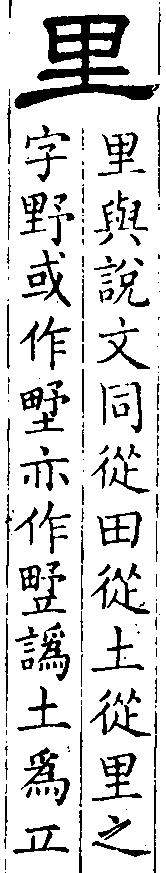 里
里與說文同從田從土從里之
字野或作墅亦作壄譌土爲丌